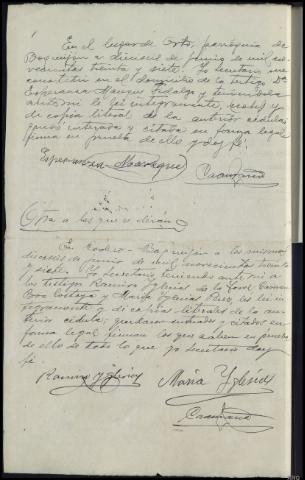 En el lugar de Orto, parroquia de
Boqueijon a dieciseis de junio de mil no-
vecientos treinta y siete. Yo Secretario me
constituí en el domicilio de la testigo Dª
Esperanza Fidalgo y teniendola
ante mi le leí integramente, notes y
dí copia literal de la anterior cédula
quedó enterada y citada en forma legal
firma en prueba de ello y doy fé.
Esperanza
Otra a los que se dirán
En Codeso - Boqueijon a los mismos
dieciseis de junio de mil novecientos treinta
y siete. Yo Secretario teniendo ante mi a
los testigos Ramiro Yglesias de la Carmen
y Maria Yglesias les lei in-
tegramente y dí copias literales de la an-
terior cédula; quedaron enterados y citados en
forma legal firman los que saben en prueba
de ello de todo lo que yo secretario doy
fé.
Ramiro Yglesias
Maria Yglesias